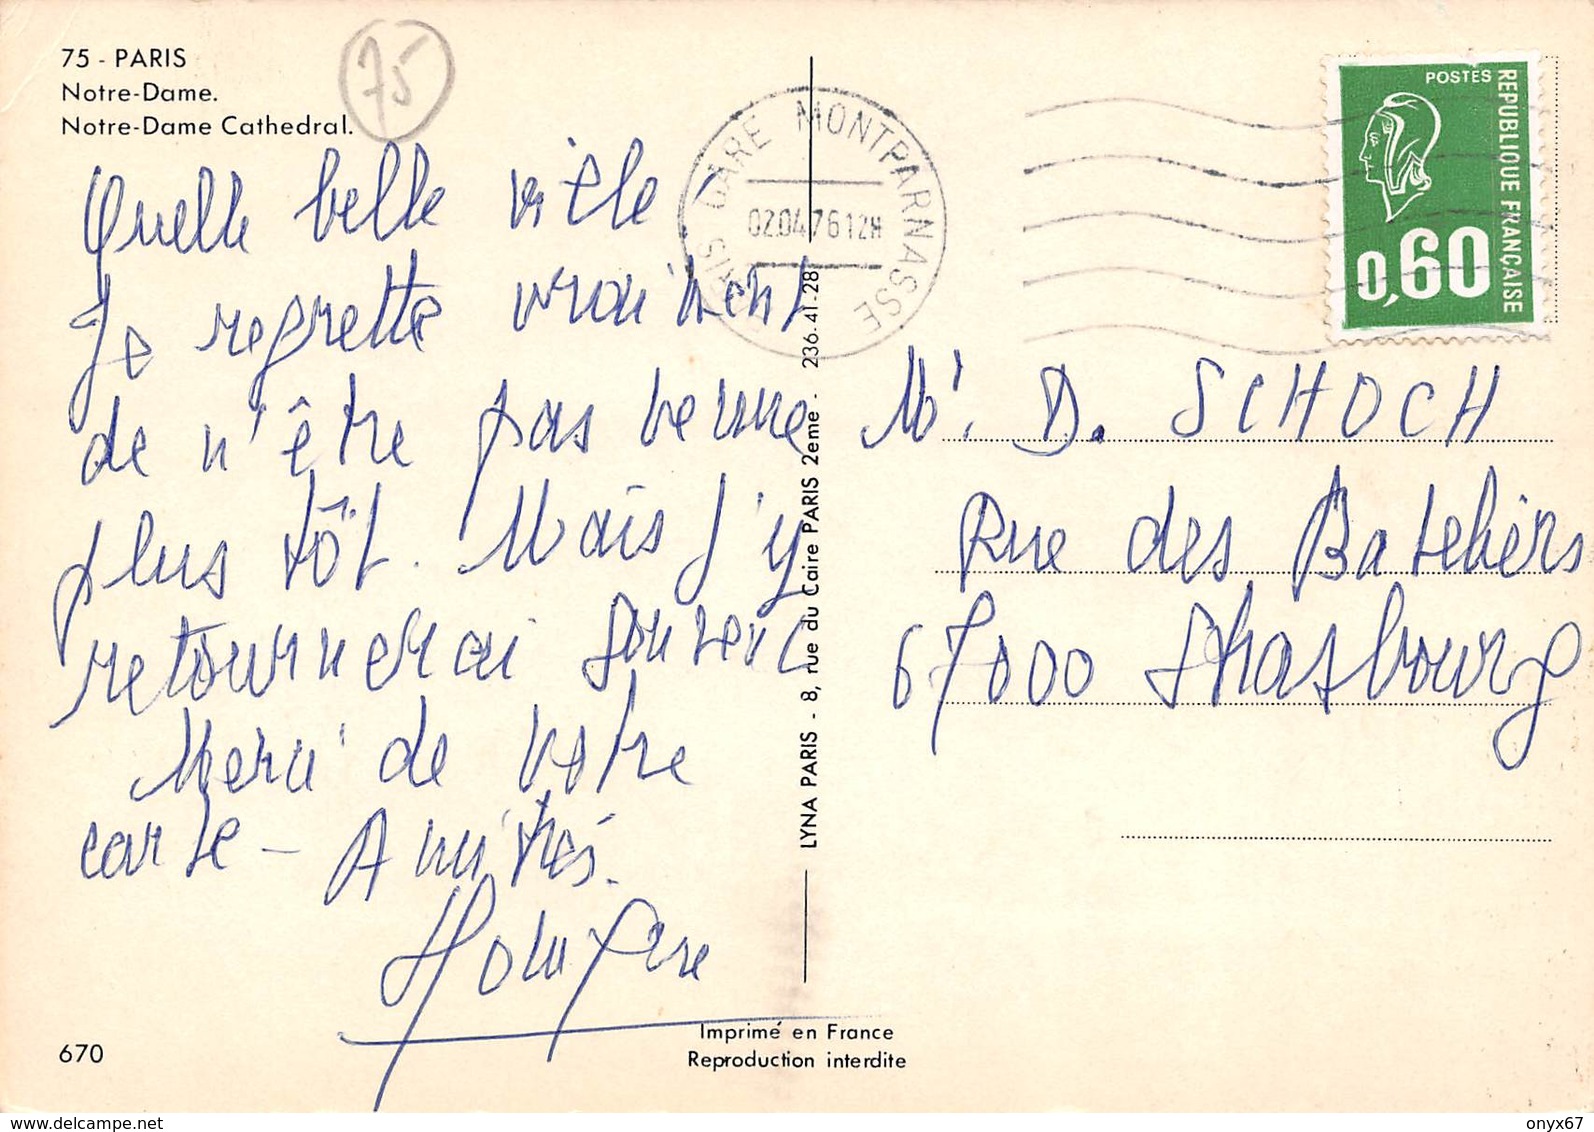 75 - PARIS
Notre-Dame.
Notre-Dame Cathedral.
75
Quelle belle ville
Je regrette vraiment
de n'être pas venue
plus tôt. Mais j'y
retournerai souvent
Merci de votre
carte - Amitiés.
PARIS GARE MONTPARNASSE
02.04.76 12H
POSTES
REPUBLIQUE FRANÇAISE
0,60
Mr. D. SCHOCH
Rue des Bateliers
67000 Strasbourg
LYNA PARIS - 8, rue du Caire PARIS 2eme - 236-41-28
Imprimé en France
Reproduction interdite
670
delcampe.net
onyx67